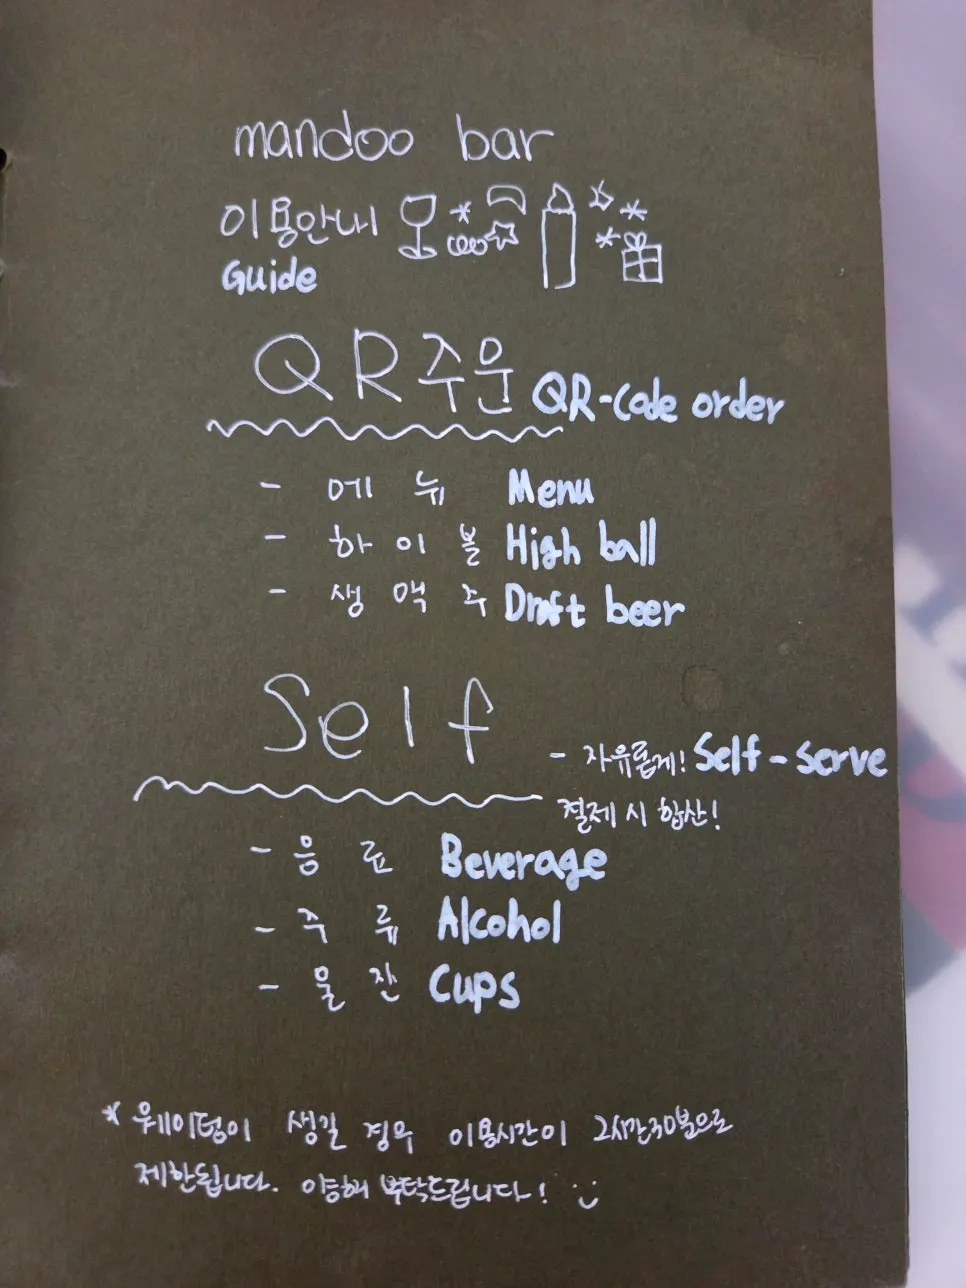 mandoo bar
이용안내
Guide
QR주문 QR-code order
- 메뉴 Menu
- 하이볼 High ball
- 생맥주 Draft beer
Self
- 자유롭게! Self-serve
결제 시 합산!
- 음료 Beverage
- 주류 Alcohol
- 물잔 Cups
* 웨이팅이 생길 경우 이용시간이 2시간30분으로
제한됩니다. 이해 부탁드립니다! :)